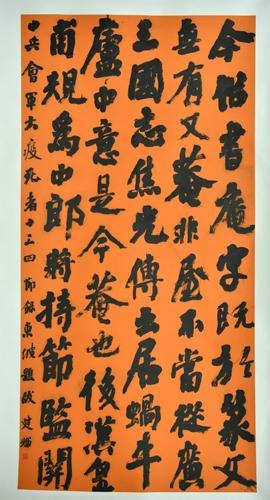 今俗書庵字既於篆文
無有又菴非屋不當從廣
三國志焦光傳云居蝸牛
廬中意是今菴也後漢皇
甫規為中郎將持節監關
中兵會軍大疫死者十三四 節錄東坡題跋 建